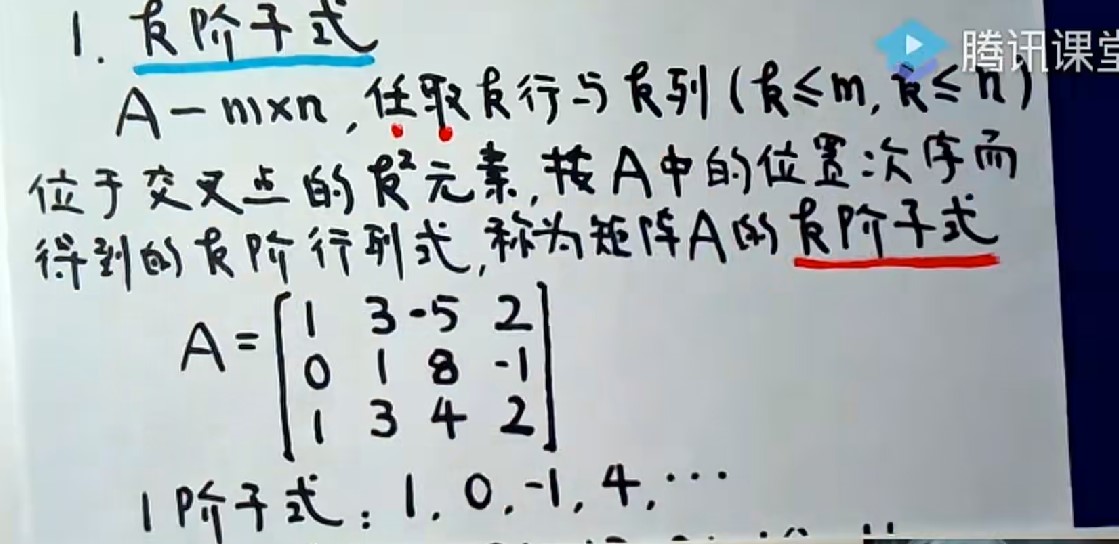 腾讯课堂
1. k阶子式
A-m×n,任取k行与k列(k≤m,k≤n)
位于交叉点的k²元素,按A中的位置次序而
得到的k阶行列式,称为矩阵A的k阶子式
A=[1 3 -5 2
0 1 8 -1
1 3 4 2]
1阶子式:1,0,-1,4,…